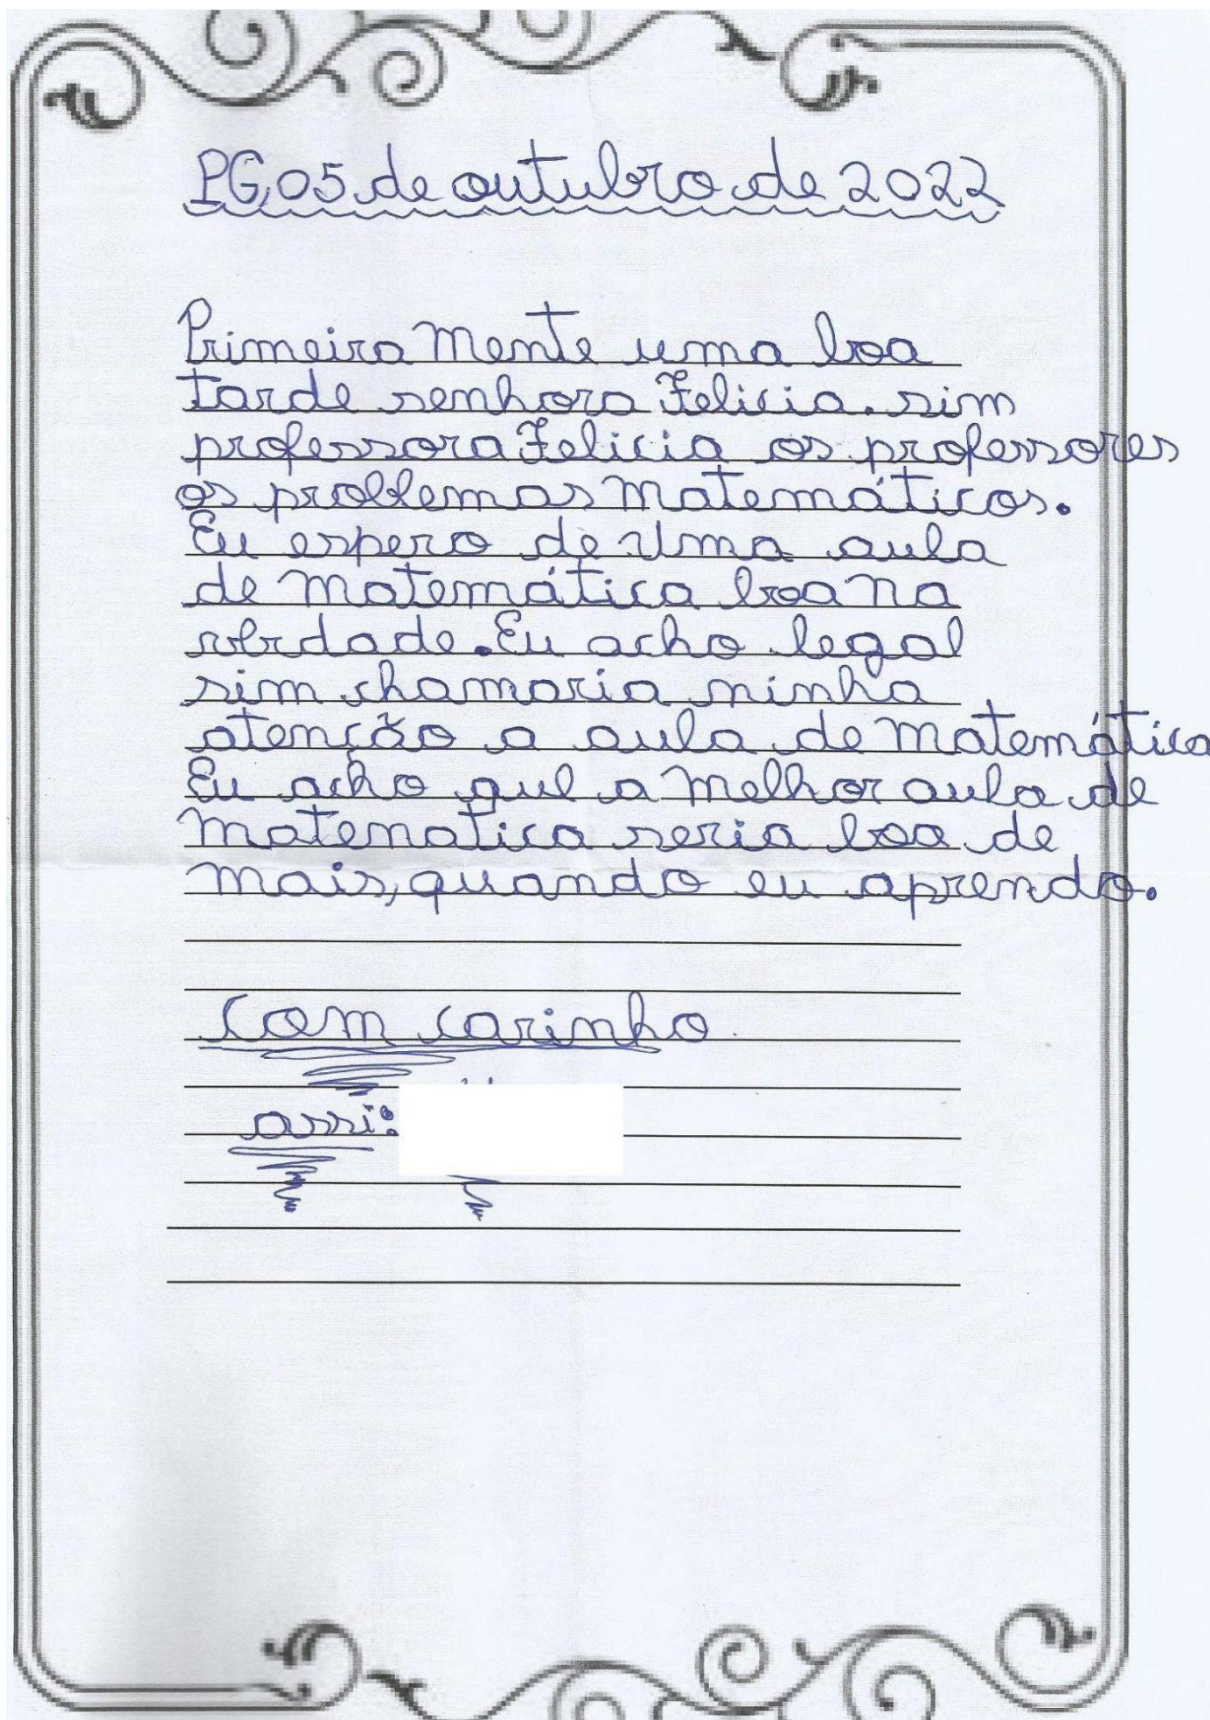 PG,05 de outubro de 2022
Primeira Mente uma boa
tarde senhora Felicia. sim
professora Felicia os professores
os problemas matemáticos.
Eu espero de Uma aula
de matemática boa na
verdade. Eu acho legal
sim chamaria minha
atenção a aula de matemática
Eu acho que a melhor aula de
matematica seria boa de
mais, quando eu aprendo.
Com carinho
assi: